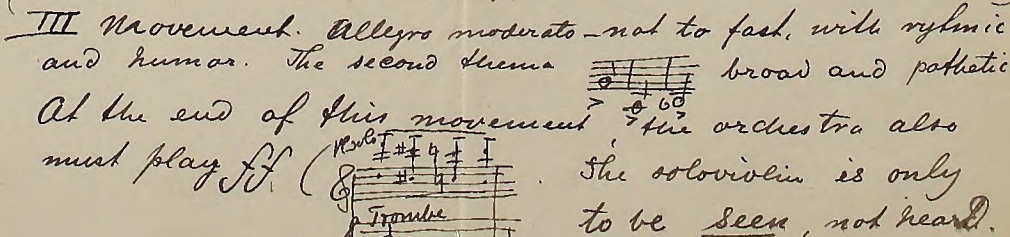 III Movement. Allegro moderato – not to fast, with rytmic
and humor. The second thema broad and pathetic
At the end of this movement, the orchestra also
must play ff. ( Solo The soloviolin is only
Trombe to be seen, not heard.